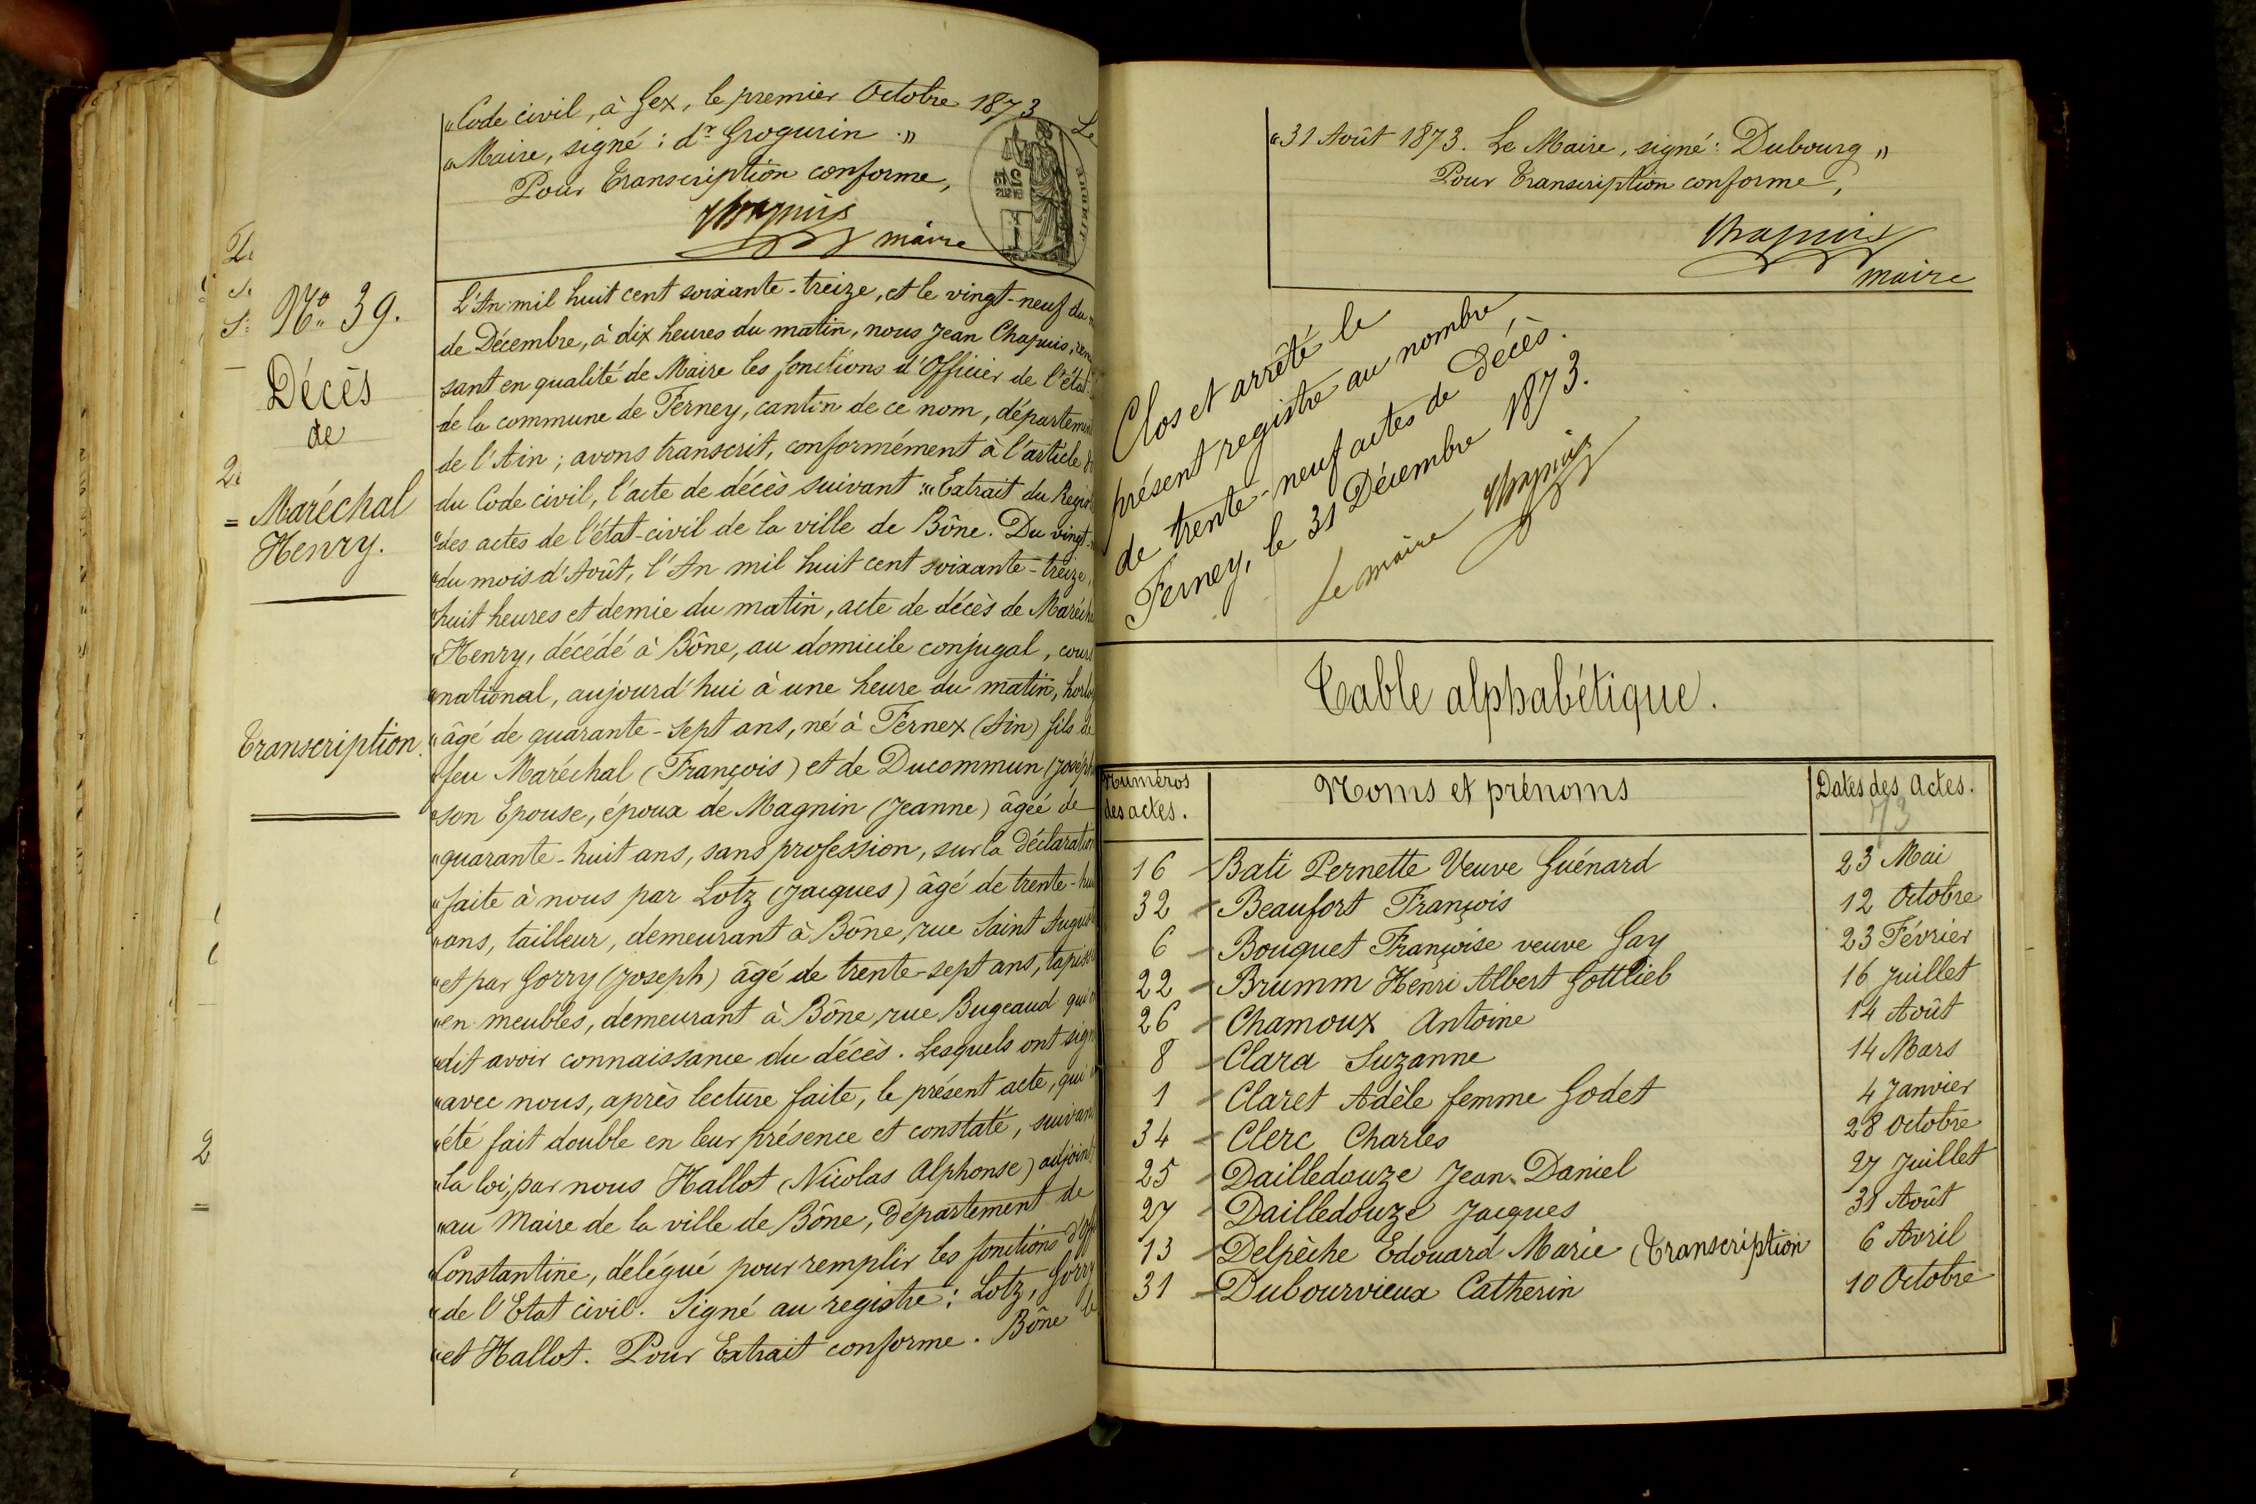 "Code civil, à Gex, le premier Octobre 1873 Le
"Maire, signé: dr Grogurin."
Pour Transcription conforme,
Chapuis
maire
No 39.
Décès
de
Maréchal
Henry.
Transcription.
L'An mil huit cent soixante-treize, et le vingt-neuf du
de Décembre, à dix heures du matin, nous Jean Chapuis,
sant en qualité de Maire les fonctions d'Officier de l'état
de la commune de Ferney, canton de ce nom, départem
de l'Ain; avons transcrit, conformément à l'article
du Code civil, l'acte de décès suivant: "Extrait du Regis
"des actes de l'état-civil de la ville de Bône. Du vingt-
"du mois d'Août, l'An mil huit cent soixante-treize,
"huit heures et demie du matin, acte de décès de Maréch
"Henry, décédé à Bône, au domicile conjugal, cours
"national, aujourd'hui à une heure du matin, horlo
"âgé de quarante-sept ans, né à Fernex (Ain) fils de
"feu Maréchal (François) et de Ducommun (Joséph
"son Epouse, époux de Magnin (Jeanne) âgée de
"quarante-huit ans, sans profession, sur la déclaration
"faite à nous par Lotz (Jacques) âgé de trente-hui
"ans, tailleur, demeurant à Bône, rue Saint August
"et par Gorry (Joseph) âgé de trente-sept ans, tapiss
"en meubles, demeurant à Bône, rue Bugeaud qui
"dit avoir connaissance du décès. Lesquels ont sign
"avec nous, après lecture faite, le présent acte, qui
"été fait double en leur présence et constaté, suivant
"la loi, par nous Hallot (Nicolas Alphonse) adjoint
"au Maire de la ville de Bône, département de
"Constantine, délégué pour remplir les fonctions d'Off
"de l'Etat civil. Signé au registre: Lotz, Gorry
"et Hallot. Pour Extrait conforme. Bône le
"31 Août 1873. Le Maire, signé: Dubourg"
Pour Transcription conforme,
Chapuis
maire
Clos et arrêté le
présent registre au nombre
de trente-neuf actes de décès.
Ferney, le 31 Décembre 1873.
Le maire Chapuis
Table alphabétique.
Numéros des actes. Noms et prénoms Dates des actes.
73
16 Bati Pernette Veuve Guénard 23 Mai
32 Beaufort François 12 Octobre
6 Bouquet Françoise veuve Gay 23 Février
22 Brumm Henri Albert Gottlieb 16 Juillet
26 Chamoux Antoine 14 Août
8 Clara Suzanne 14 Mars
1 Claret Adèle femme Godet 4 Janvier
34 Clerc Charles 28 Octobre
25 Dailledouze Jean-Daniel 27 Juillet
27 Dailledouze Jacques 31 Août
13 Delpèche Edouard Marie (Transcription 6 Avril
31 Dubourvieux Catherin 10 Octobre